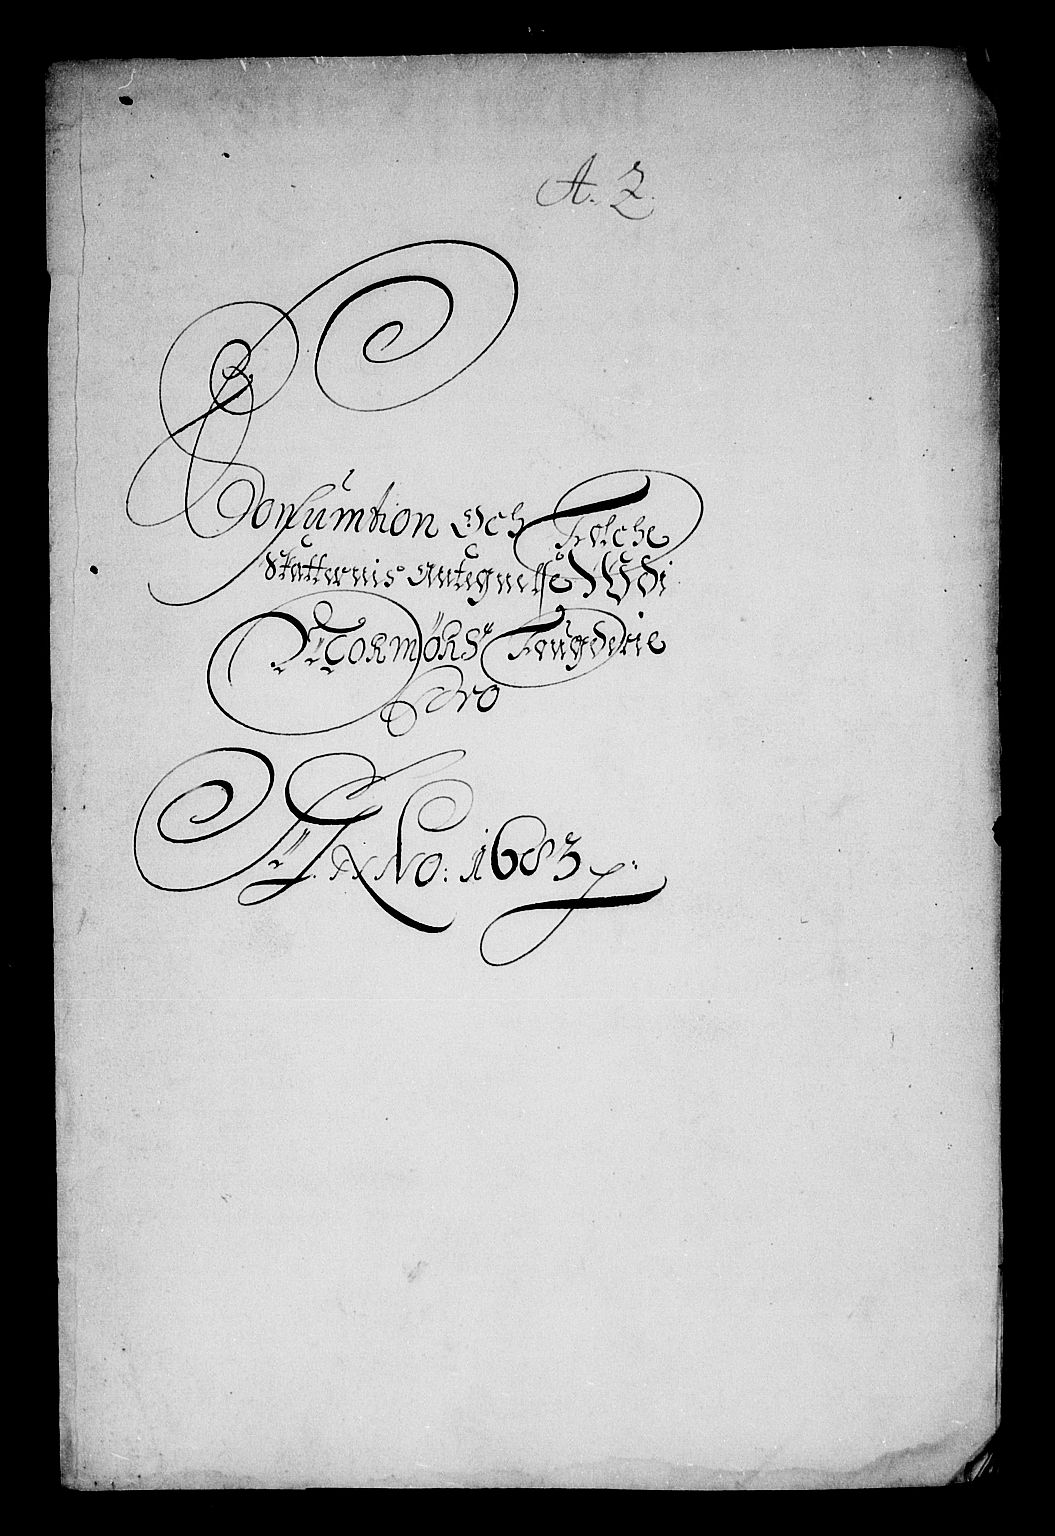 A. Z.
Consumtion Och Folche
Skatternis Antegnelse Udi
Nordmörs Fougderie
Pro
ANNO: 1683